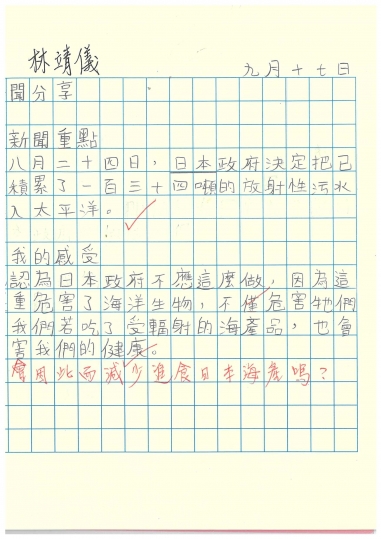 林靖儀
九月十七日
聞分享
新聞重點
八月二十四日，日本政府決定把已
積累了一百三十四噸的放射性污水
入太平洋。
我的感受
認為日本政府不應這麼做，因為這
重危害了海洋生物，不僅危害牠們
我們若吃了受輻射的海產品，也會
害我們的健康。
會因此而減少進食日本海產嗎？